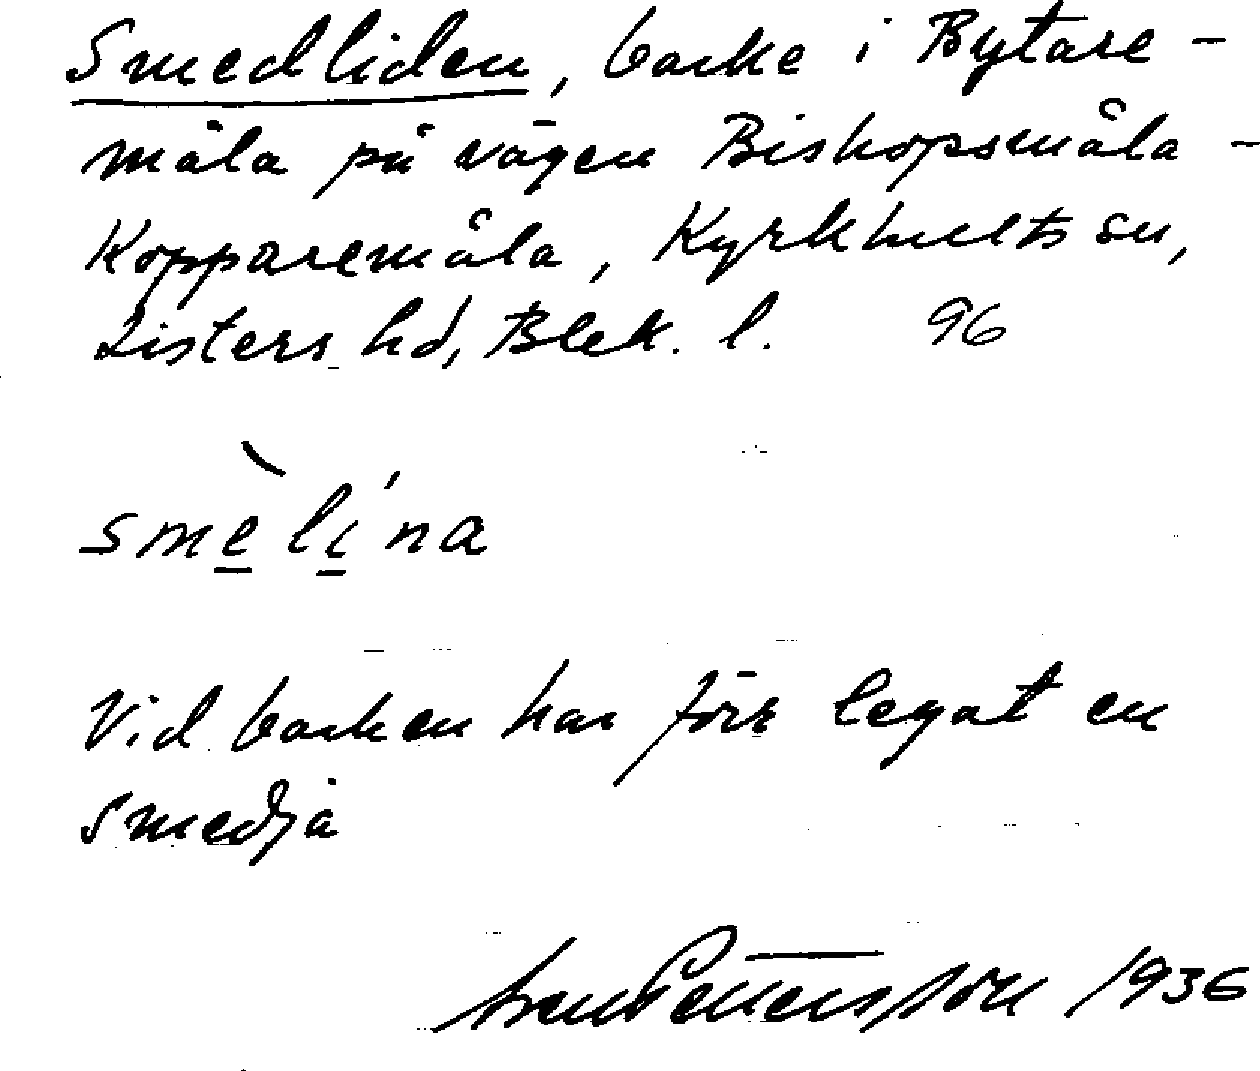 Smedliden, backe i Bytare-
måla på vägen Biskopsmåla -
Kopparemåla, Kyrkhults sn,
Listers hd, Blek. l. 96
smè̱lí̱na
Vid backen har förr legat en
smedja
Pettersson 1936